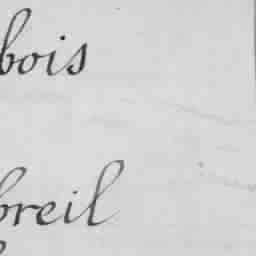 bois
breil